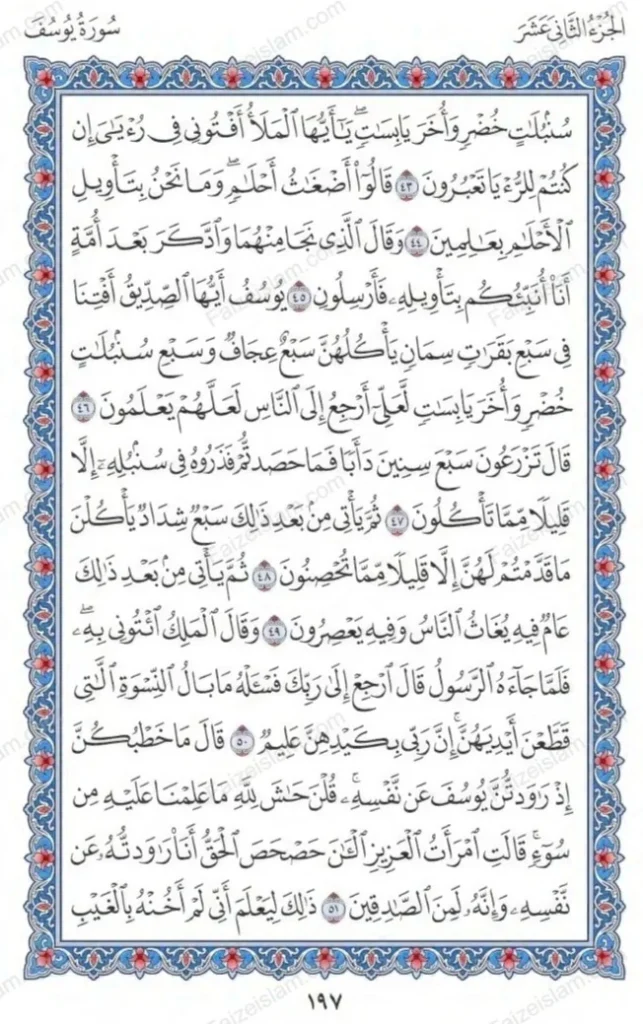 الجُزْءُ الثَّانِى عَشَرَ
سُورَةُ يُوسُفَ
سُنۢبُلَٰتٍ خُضْرٍ وَأُخَرَ يَابِسَٰتٍ ۖ يَٰٓأَيُّهَا ٱلْمَلَأُ أَفْتُونِى فِى رُءْيَٰىَ إِن
كُنتُمْ لِلرُّءْيَا تَعْبُرُونَ ٤٣ قَالُوٓا۟ أَضْغَٰثُ أَحْلَٰمٍ ۖ وَمَا نَحْنُ بِتَأْوِيلِ
ٱلْأَحْلَٰمِ بِعَٰلِمِينَ ٤٤ وَقَالَ ٱلَّذِى نَجَا مِنْهُمَا وَٱدَّكَرَ بَعْدَ أُمَّةٍ
أَنَا۠ أُنَبِّئُكُم بِتَأْوِيلِهِۦ فَأَرْسِلُونِ ٤٥ يُوسُفُ أَيُّهَا ٱلصِّدِّيقُ أَفْتِنَا
فِى سَبْعِ بَقَرَٰتٍ سِمَانٍ يَأْكُلُهُنَّ سَبْعٌ عِجَافٌ وَسَبْعِ سُنۢبُلَٰتٍ
خُضْرٍ وَأُخَرَ يَابِسَٰتٍ لَّعَلِّىٓ أَرْجِعُ إِلَى ٱلنَّاسِ لَعَلَّهُمْ يَعْلَمُونَ ٤٦
قَالَ تَزْرَعُونَ سَبْعَ سِنِينَ دَأَبًا فَمَا حَصَدتُّمْ فَذَرُوهُ فِى سُنۢبُلِهِۦٓ إِلَّا
قَلِيلًا مِّمَّا تَأْكُلُونَ ٤٧ ثُمَّ يَأْتِى مِنۢ بَعْدِ ذَٰلِكَ سَبْعٌ شِدَادٌ يَأْكُلْنَ
مَا قَدَّمْتُمْ لَهُنَّ إِلَّا قَلِيلًا مِّمَّا تُحْصِنُونَ ٤٨ ثُمَّ يَأْتِى مِنۢ بَعْدِ ذَٰلِكَ
عَامٌ فِيهِ يُغَاثُ ٱلنَّاسُ وَفِيهِ يَعْصِرُونَ ٤٩ وَقَالَ ٱلْمَلِكُ ٱئْتُونِى بِهِۦ ۖ
فَلَمَّا جَآءَهُ ٱلرَّسُولُ قَالَ ٱرْجِعْ إِلَىٰ رَبِّكَ فَسْـَٔلْهُ مَا بَالُ ٱلنِّسْوَةِ ٱلَّٰتِى
قَطَّعْنَ أَيْدِيَهُنَّ ۚ إِنَّ رَبِّى بِكَيْدِهِنَّ عَلِيمٌ ٥٠ قَالَ مَا خَطْبُكُنَّ
إِذْ رَٰوَدتُّنَّ يُوسُفَ عَن نَّفْسِهِۦ ۚ قُلْنَ حَٰشَ لِلَّهِ مَا عَلِمْنَا عَلَيْهِ مِن
سُوٓءٍ ۚ قَالَتِ ٱمْرَأَتُ ٱلْعَزِيزِ ٱلْـَٰٔنَ حَصْحَصَ ٱلْحَقُّ أَنَا۠ رَٰوَدتُّهُۥ عَن
نَّفْسِهِۦ وَإِنَّهُۥ لَمِنَ ٱلصَّٰدِقِينَ ٥١ ذَٰلِكَ لِيَعْلَمَ أَنِّى لَمْ أَخُنْهُ بِٱلْغَيْبِ
١٩٧
Faizeislam.com